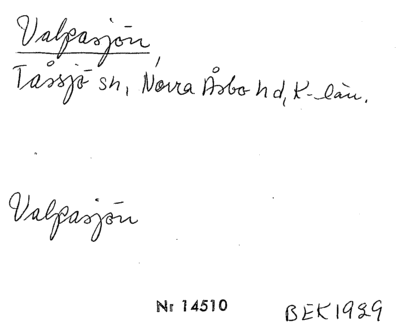 Valpasjön,
Tåssjö sn, Norra Åsbo hd, K-län.
Valpasjön
Nr 14510
BEK 1929